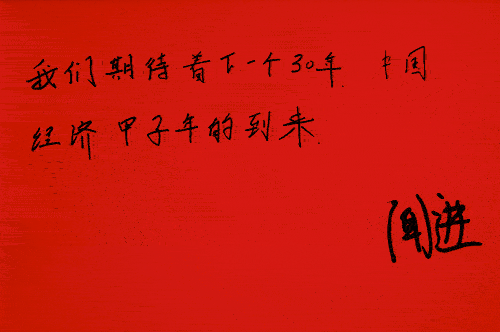 我们期待着下一个30年 中国
经济甲子年的到来
闻进